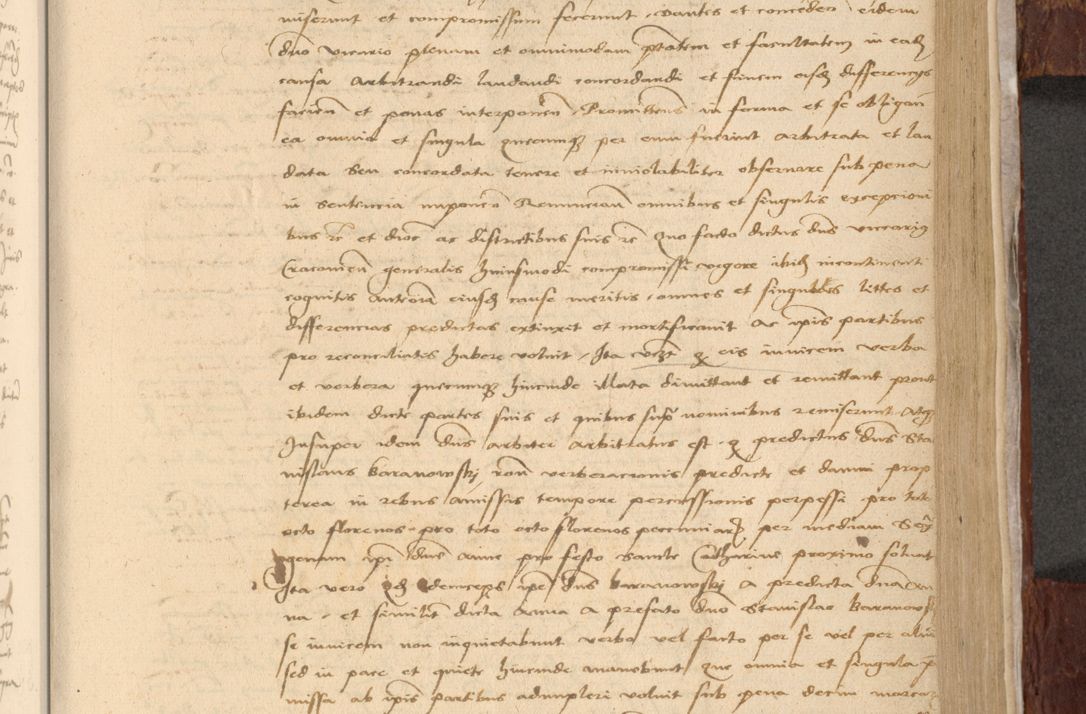 miserunt et compromissum fecerunt, dantes et conceden eidem
dno vicario plenam et omnimodam ptatem et facultatem in eadem
causa Arbitrandi laudandi concordandi et finem eisdem differencijs
facien et penas interponen Promitten in forma et se obligan
ea omnia et singula quecumque per eum fuerint arbitrata et lau
data seu concordata tenere et inviolabiliter observare sub pena
in sententia imponen Renuncian omnibus et singulis excepcioni
bus rc et dioc ac districtibus suis rc Quo facto dictus dns vicarius
Cracovien generalis huiusmodi compromissi vigore ibidem incontinenti
cognitis Antea eiusdem cause meritis, omnes et singulas littes et
differencias predictas extinxit et mortificavit Ac ipis partibus
pro reconciliatis habere voluit, Ita vizt q eis invicem verba
et verbera quecumque hincinde illata dimittant et remittant prout
ibidem dicte partes suis et quibus supra nominibus remiserunt. Atque
Insuper idem dns arbiter arbitratus est q predictus dns Sta
nislaus Baranowskj, ron verberacionis predicte et damni prop
terea in rebus amissis tempore percussionis perpessi pro toto
octo florenos pro toto octo florenos pecuniar per mediam Sex
genam ipi dne Anne pro festo Sancte Catharine proximo solvat
Ita vero q deinceps ipe dns Baranowskj A predicta dna An
na, et similit dicta Anna A prefato dno Stanislao Baranowsk
se invicem non inquietabunt verbo vel facto per se vel per alium
sed in pace et quiete hincinde manebunt que omnia et singula p
missa ab ipis partibus adimpleri voluit sub pena decem marcar